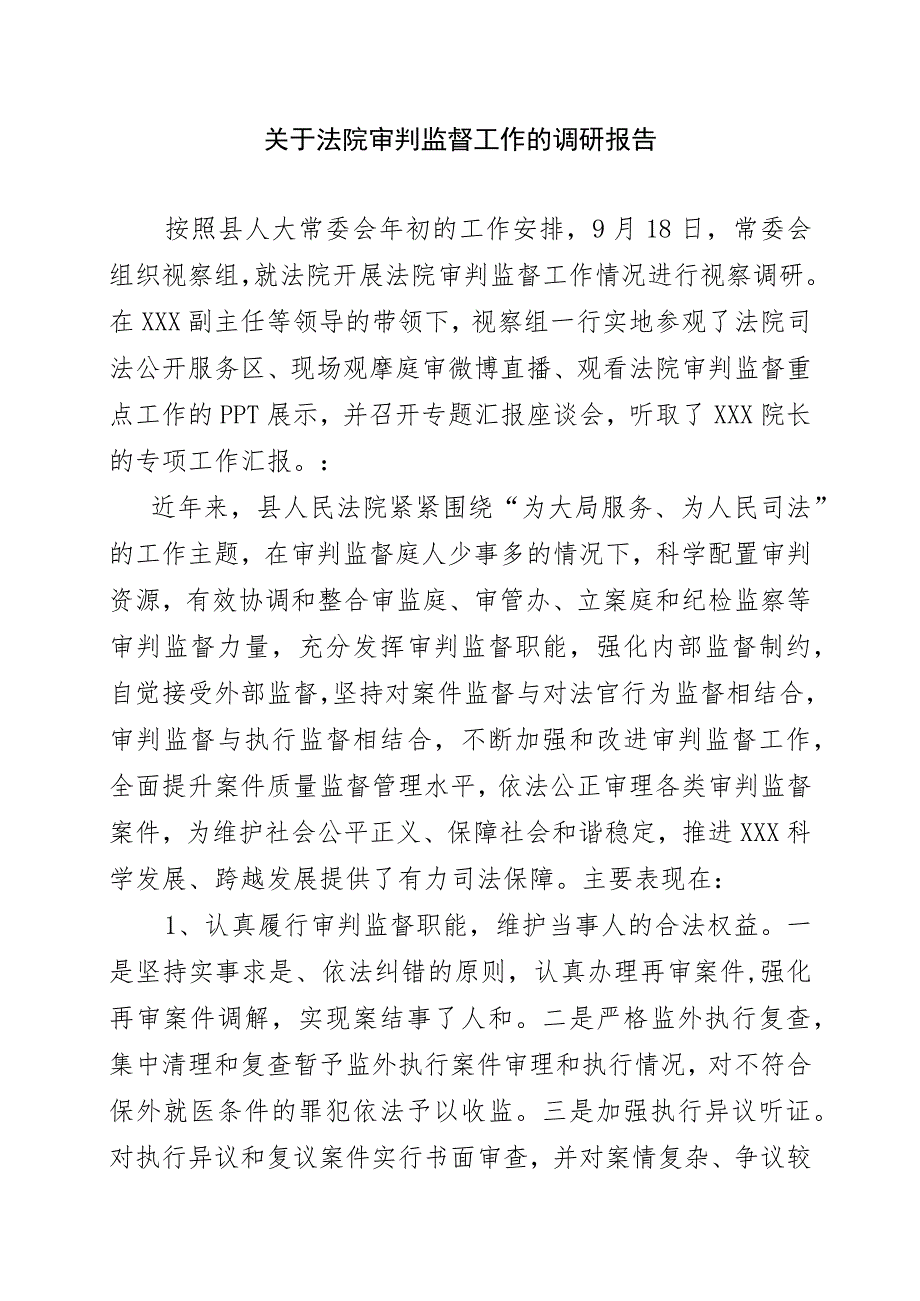 关于法院审判监督工作的调研报告
按照县人大常委会年初的工作安排，9月18日，常委会
组织视察组,就法院开展法院审判监督工作情况进行视察调研。
在XXX副主任等领导的带领下,视察组一行实地参观了法院司
法公开服务区、现场观摩庭审微博直播、观看法院审判监督重
点工作的PPT展示，并召开专题汇报座谈会，听取了XXX院长
的专项工作汇报。：
近年来，县人民法院紧紧围绕“为大局服务、为人民司法”
的工作主题，在审判监督庭人少事多的情况下，科学配置审判
资源，有效协调和整合审监庭、审管办、立案庭和纪检监察等
审判监督力量，充分发挥审判监督职能，强化内部监督制约，
自觉接受外部监督,坚持对案件监督与对法官行为监督相结合，
审判监督与执行监督相结合，不断加强和改进审判监督工作，
全面提升案件质量监督管理水平，依法公正审理各类审判监督
案件，为维护社会公平正义、保障社会和谐稳定，推进XXX科
学发展、跨越发展提供了有力司法保障。主要表现在：
1、认真履行审判监督职能，维护当事人的合法权益。一
是坚持实事求是、依法纠错的原则，认真办理再审案件,强化
再审案件调解，实现案结事了人和。二是严格监外执行复查，
集中清理和复查暂予监外执行案件审理和执行情况，对不符合
保外就医条件的罪犯依法予以收监。三是加强执行异议听证。
对执行异议和复议案件实行书面审查，并对案情复杂、争议较